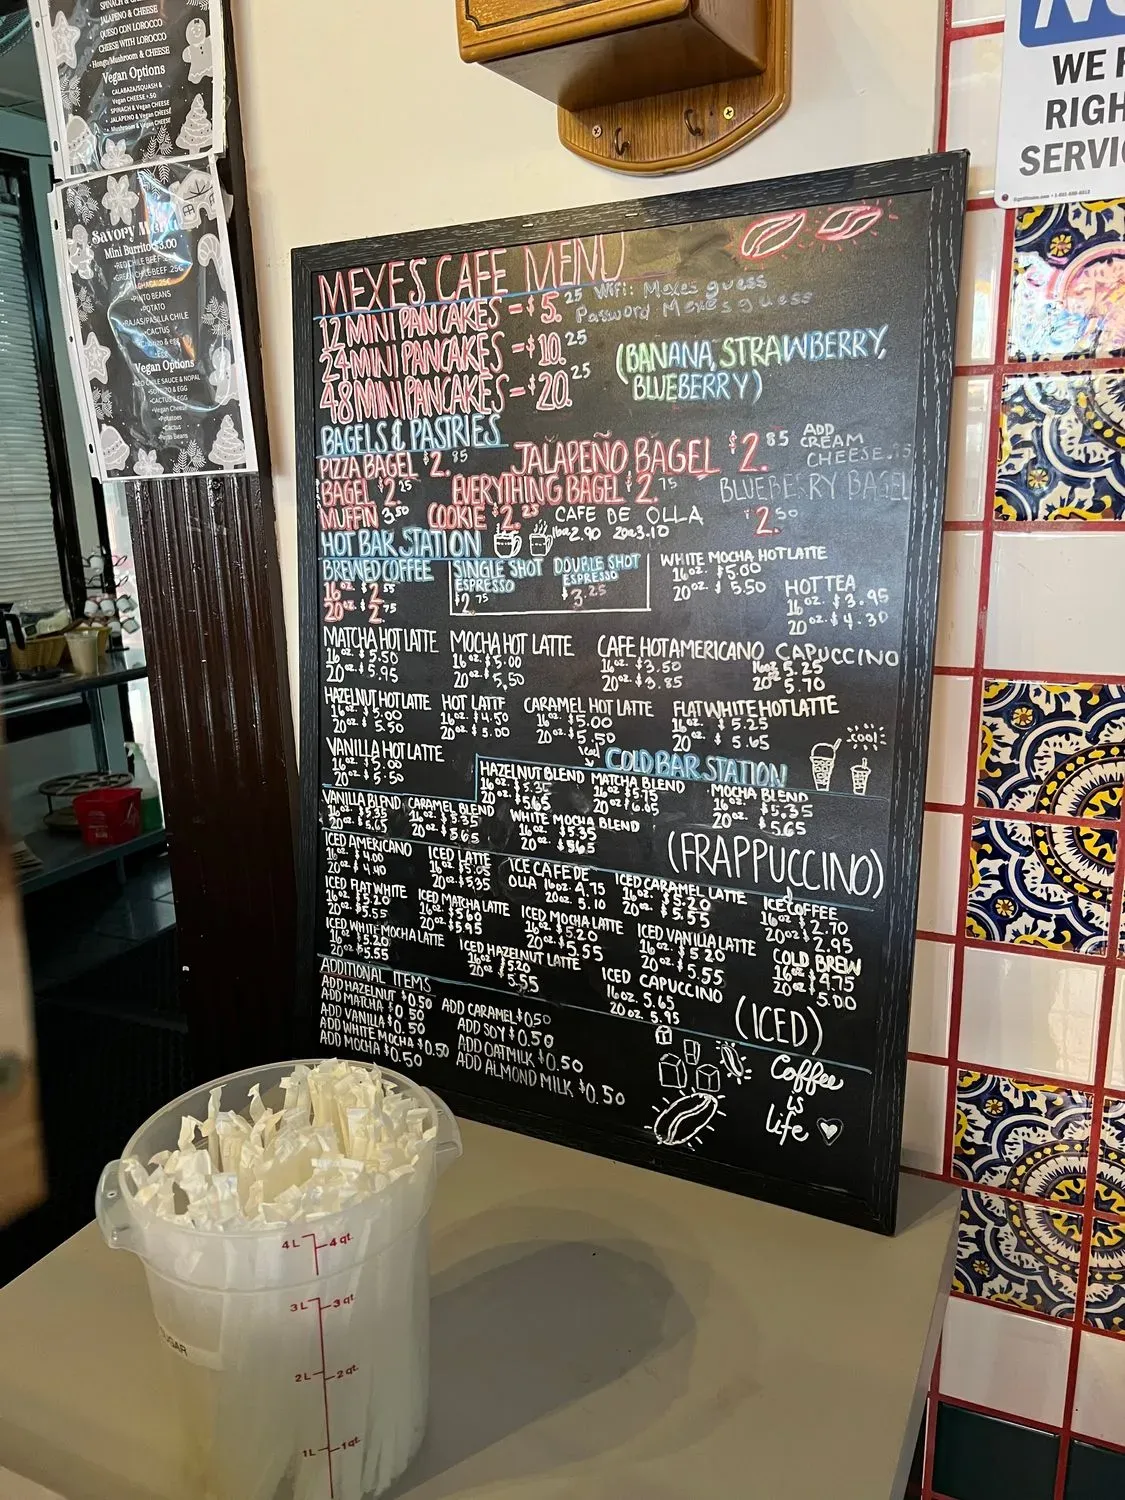 SPINACH & CHEESE
JALAPEÑO & CHEESE
QUESO CON LOROCCO
CHEESE WITH LOROCCO
Hongo/Mushroom & CHEESE
Vegan Options
CALABAZA/SQUASH &
Vegan CHEESE +.50
SPINACH & Vegan CHEESE
JALAPEÑO & Vegan CHEESE
Mushroom & Vegan CHEESE
Savory Menu
Mini Burrito $3.00
PINTO BEANS
POTATO
RAJAS/PASILLA CHILE
CACTUS
Vegan Options
RED CHILE SAUCE & NOPAL
CACTUS & EGG
Vegan Cheese
Potatoes
Cactus
Pinto Beans
WE
RIGH
SERVI
MEXES CAFE MENU
12 MINI PANCAKES = $5.25
Wifi: Mexes guess
Password Mexes guess
24 MINI PANCAKES = $10.25
48 MINI PANCAKES = $20.25
(BANANA, STRAWBERRY,
BLUEBERRY)
BAGELS & PASTRIES
PIZZA BAGEL $2.85 JALAPEÑO BAGEL $2.85 ADD CREAM CHEESE
BAGEL $2.25 EVERYTHING BAGEL $2.75 BLUEBERRY BAGEL
MUFFIN 3.50 COOKIE $2.25 CAFE DE OLLA $2.50
16oz 2.90 20oz 3.10
HOT BAR STATION
BREWED COFFEE
16oz. $2.55
20oz. $2.75
SINGLE SHOT ESPRESSO
$2.75
DOUBLE SHOT ESPRESSO
$3.25
WHITE MOCHA HOT LATTE
16oz. $5.00
20oz. $5.50
HOT TEA
16oz. $3.95
20oz. $4.30
MATCHA HOT LATTE
16oz. $5.50
20oz. $5.95
MOCHA HOT LATTE
16oz. $5.00
20oz. $5.50
CAFE HOT AMERICANO
16oz. $3.50
20oz. $3.85
CAPUCCINO
16oz 5.25
20oz 5.70
HAZELNUT HOT LATTE
16oz. $5.00
20oz. $5.50
HOT LATTE
16oz. $4.50
20oz. $5.00
CARAMEL HOT LATTE
16oz. $5.00
20oz. $5.50
FLAT WHITE HOT LATTE
16oz. $5.25
20oz. $5.65
VANILLA HOT LATTE
16oz. $5.00
20oz. $5.50
cool
COLD BAR STATION
HAZELNUT BLEND
16oz. $5.35
20oz. $5.65
MATCHA BLEND
16oz. $5.75
20oz. $6.05
MOCHA BLEND
16oz. $5.35
20oz. $5.65
VANILLA BLEND
16oz. $5.35
20oz. $5.65
CARAMEL BLEND
16oz. $5.35
20oz. $5.65
WHITE MOCHA BLEND
16oz. $5.35
20oz. $5.65
(FRAPPUCCINO)
ICED AMERICANO
16oz. $4.00
20oz. $4.40
ICED LATTE
16oz. $5.05
20oz. $5.35
ICE CAFE DE
OLLA 16oz. 4.75
20oz. 5.10
ICED CARAMEL LATTE
16oz. $5.20
20oz. $5.55
ICE COFFEE
16oz. $2.70
20oz $2.95
ICED FLAT WHITE
16oz. $5.20
20oz. $5.55
ICED MATCHA LATTE
16oz. $5.60
20oz. $5.95
ICED MOCHA LATTE
16oz. $5.20
20oz. $5.55
ICED VANILLA LATTE
16oz. $5.20
20oz. $5.55
COLD BREW
16oz. $4.75
20oz. $5.00
ICED WHITE MOCHA LATTE
16oz $5.20
20oz. $5.55
ICED HAZELNUT LATTE
16oz. $5.20
20oz. 5.55
ICED CAPUCCINO
16oz. 5.65
20oz. 5.95
(ICED)
ADDITIONAL ITEMS
ADD HAZELNUT $0.50
ADD MATCHA $0.50
ADD VANILLA $0.50
ADD WHITE MOCHA $0.50
ADD MOCHA $0.50
ADD CARAMEL $0.50
ADD SOY $0.50
ADD OATMILK $0.50
ADD ALMOND MILK $0.50
Coffee
is
life
4L 4qt.
3L 3qt.
2L 2qt.
1L 1qt.